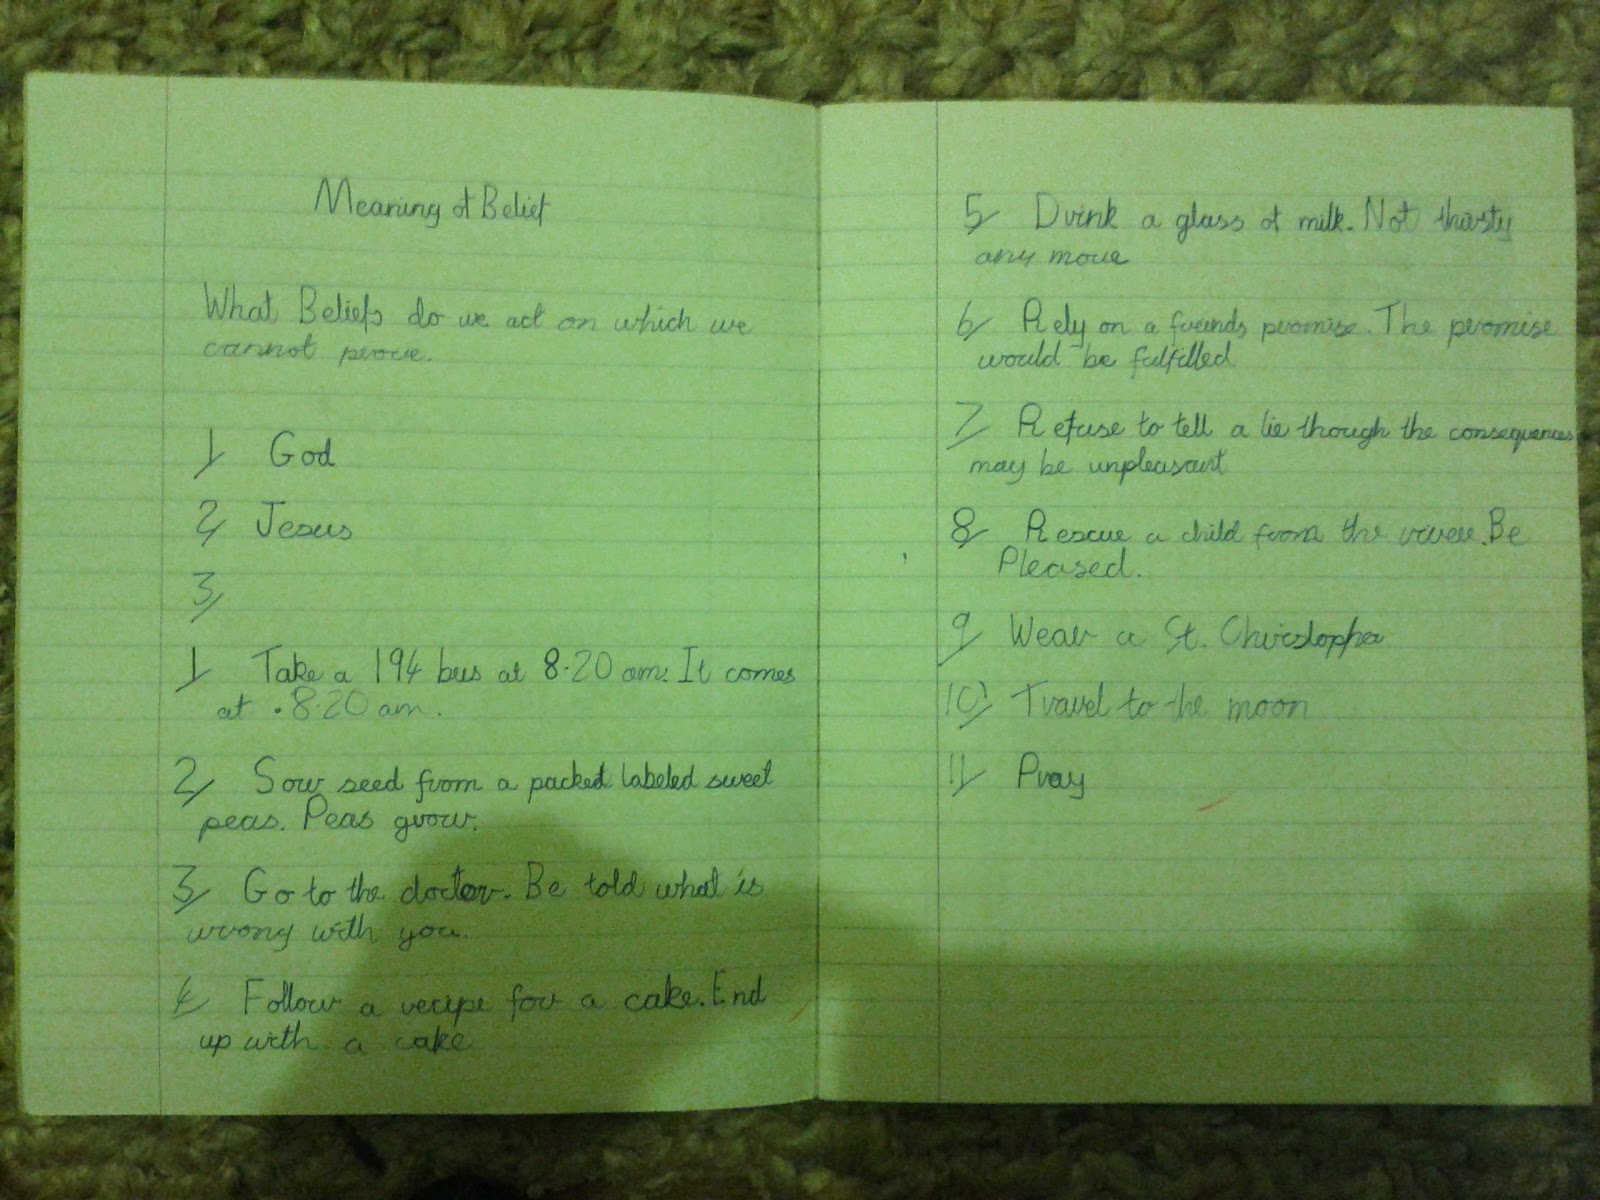 Meaning of Belief
What Beliefs do we act on which we
cannot prove.
1/ God
2/ Jesus
3/
1/ Take a 194 bus at 8.20 am. It comes
at .8.20 am.
2/ Sow seed from a packet labeled sweet
peas. Peas grow.
3/ Go to the doctor. Be told what is
wrong with you.
4/ Follow a recipe for a cake. End
up with a cake
5/ Drink a glass of milk. Not thirsty
any more
6/ Rely on a freinds promise. The promise
would be fulfilled
7/ Refuse to tell a lie though the consequences
may be unpleasant
8/ Rescue a child from the river. Be
Pleased.
9/ Wear a St. Christopher
10/ Travel to the moon
11/ Pray